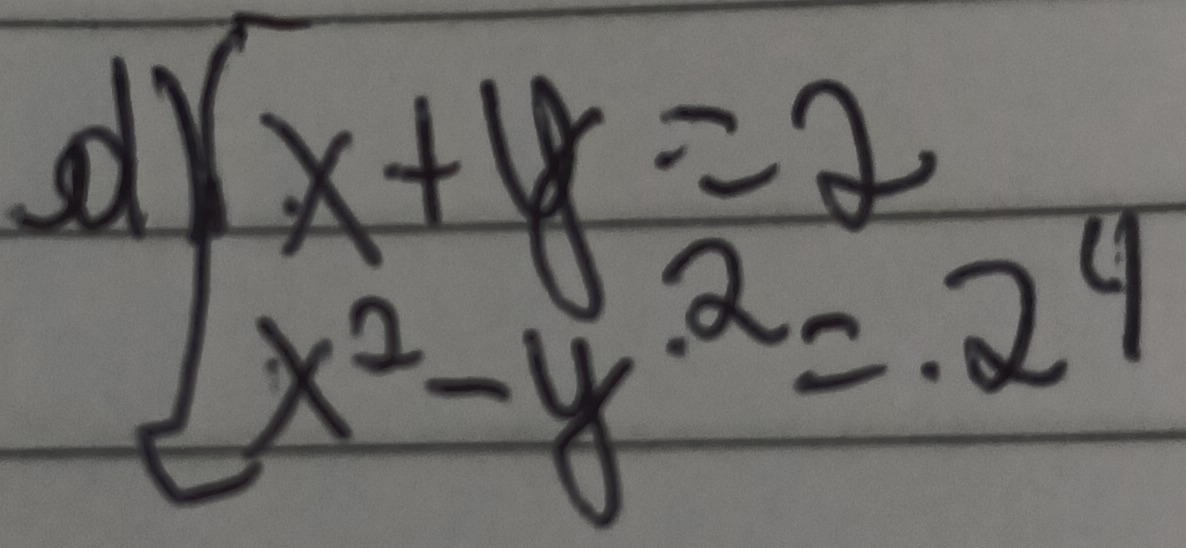 d) x + y = 2
x² - y² = 2⁴